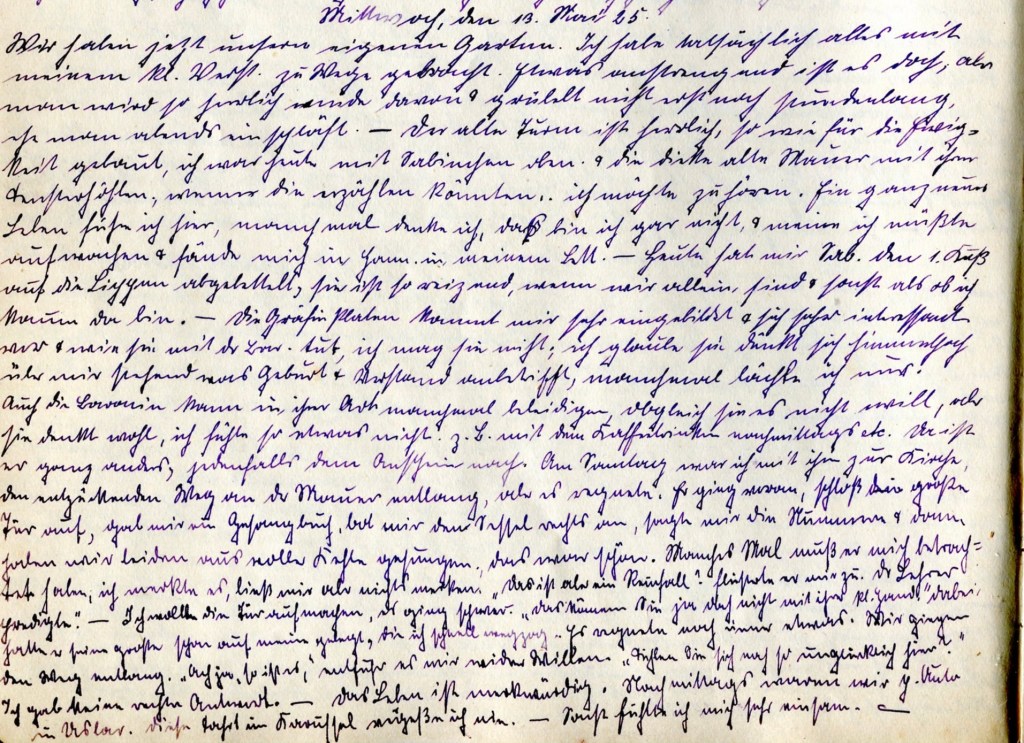 Mittwoch, den 13. Mai 25.
Wir haben jetzt unsern eigenen Garten. Ich habe tatsächlich alles mit
meinem kl. Verst. zu Wege gebracht. Etwas anstrengend ist es doch, aber
man wird so herrlich müde davon & grübelt nicht erst noch stundenlang,
ehe man abends einschläft. — Der alte Turm ist herrlich, so wie für die Ewig-
keit gebaut, ich war heute mit Sabinchen oben. & die dicke alte Mauer mit ihren
Fensterhöhlen, wenn die erzählen könnten.. ich möchte zuhören. Ein ganz neues
Leben führe ich hier, manchmal denke ich, das bin ich gar nicht, & meine ich müßte
aufwachen & fände mich in Hann. in meinem Bett. — Heute hat mir Sab. den 1. Kuß
auf die Lippen abgebettelt, sie ist so reizend, wenn wir allein sind & sonst als ob ich
kaum da bin. — Die Gräfin Platen kommt mir sehr eingebildet & sich selber interessant
vor & wie sie mit der Bar. tut, ich mag sie nicht; ich glaube sie dünkt sich himmelhoch
über mir stehend was Geburt & Verstand anbetrifft, manchmal lächle ich nur.
Auch die Baronin kann in ihrer Art manchmal beleidigen, obgleich sie es nicht will, oder
sie denkt wohl, ich fühle so etwas nicht. z. B. mit dem Kaffeetrinken nachmittags etc. Da ist
er ganz anders, jedenfalls dem Anschein nach. Am Sonntag war ich mit ihm zur Kirche,
den entzückenden Weg an der Mauer entlang, aber es regnete. Er ging voran, schloß die große
Tür auf, gab mir ein Gesangbuch, bot mir den Sessel rechts an, sagte mir die Nummern & dann
haben wir beiden aus voller Kehle gesungen, das war schön. Manches Mal muß er mich betrach-
tet haben, ich merkte es, ließ mir aber nichts merken. „Das ist aber ein Reinfall? flüsterte er mir zu. Der Lehrer
predigte." — Ich wollte die Tür aufmachen, es ging schwer. „Das können Sie ja doch nicht mit ihrer kl. Hand" dabei
hatte er seine große schon auf meine gelegt, die ich schnell wegzog. Es regnete noch immer etwas. Wir gingen
den Weg entlang. „Ach ja, so ist es," entfuhr es mir wider Willen. „Fühlen Sie sich noch so unglücklich hier?"
Ich gab keine rechte Antwort. — Das Leben ist merkwürdig. Nachmittags waren wir p. Auto
in Uslar. Diese Fahrt im Karussel vergeße ich nie. — Sonst fühlte ich mich sehr einsam. —